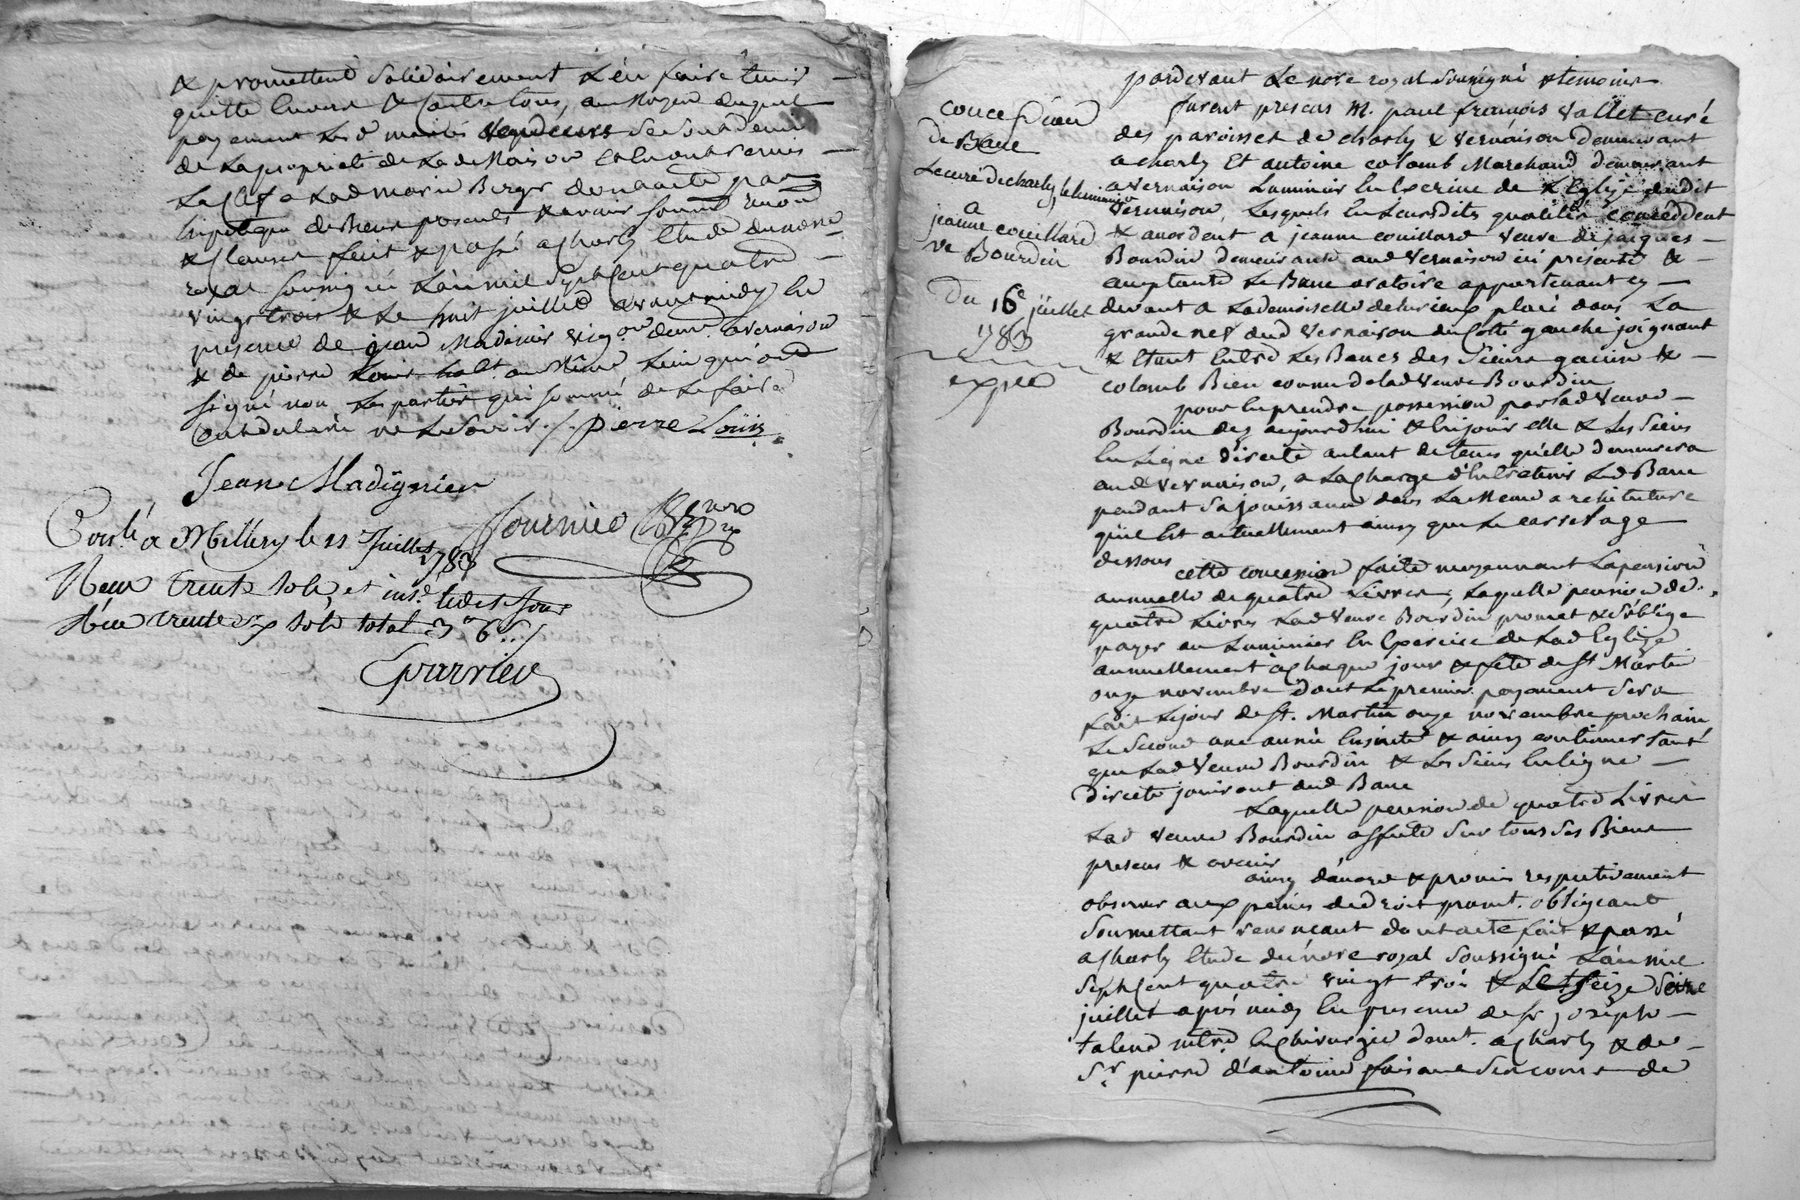 & promettent solidairement L'en faire tenir
quitte envers & contre tous, au moyen duquel
payement Les d. mariés vendeurs se sont demis
de La propriété de La de Maison
La d. Marie Berger dont acte par
hipotéque de Biens presents & avenir
& Clauses fait & passé a Charly Etude du nore
royal soussigné L'an mil Sept Cent quatre
vingt trois & Le huit juillet avant midy En
presence de jean Madinier vign.on dem.t a vernaison
& de pierre Louis hab.t au même Lieu qui ont
signé non Les parties qui sommé de Le faire
ont declaré ne Le Savoir ./. Pierre Louis
Jean Madignier
Fournier Nore
Con.lé a Millery le 11 Juillet 1783
Reçu trente sols, et ins.é led. jour
Reçu trente six sols total 3# 6s /
Guarrien
concession
de Banc
Le curé de charly, le luminier
a
jeanne couillard
ve Bourdin
Du 16e juillet
1783
expée
pardevant Le nore royal soussigné & temoins
furent presens M. paul françois vallet curé
des paroisses de charly & vernaison demeurant
a charly Et antoine colomb Marchand demeurant
a vernaison Luminier En Exercice de L'Eglise dudit
vernaison, Lesquels En Leursdites qualités concéddent
& accordent a jeanne couillard veuve de jacques
Bourdin demeurante aud vernaison ici presente &
acceptante Le Banc oratoire appartenant cy
devant a La demoiselle delurieux placé dans La
grande nef dud vernaison du Côté gauche joignant
& Etant Entre Les Bancs des Sieurs &
colomb Bien connu de lad veuve Bourdin
pour En prendre possession par lad veuve
Bourdin dez aujourd'hui & En jouir elle & Les Siens
En Ligne directe autant de tems qu'elle demeurera
aud vernaison, a La Charge d'Entretenir Led Banc
pendant Sa jouissance dans La même architecture
qu'il Est actuellement ainsy que Le carrelage
dessous
cette concession faite moyennant La pension
annuelle de quatre Livres, Laquelle pension de
quatre Livres Lad veuve Bourdin promet & s'oblige
payer au Luminier En Exercice de Lad Eglise
annuellement a Chaque jour & fete de St. Martin
onze novembre dont Le premier payement Sera
fait Le jour de St. Martin onze novembre prochain
Le Second une année Ensuite & ainsy continuer tant
que Lad Veuve Bourdin & Les Siens En Ligne
directe jouiront dud Banc
Laquelle pension de quatre Livres
Lad veuve Bourdin affecte Sur tous Ses Biens
presens & avenir
ainsy d'accord & promis respectivement
observer aux peines de droit promt. obligeant
Soumettant renonçant dont acte fait & passé
a Charly Etude du nore royal Soussigné L'an mil
Sept Cent quatre vingt trois & Le Seize
juillet après midy En presence de Sr joseph
talend mtre En Chirurgie demt. a Charly & de
Sr. pierre d'antoine faisant Ses cours de